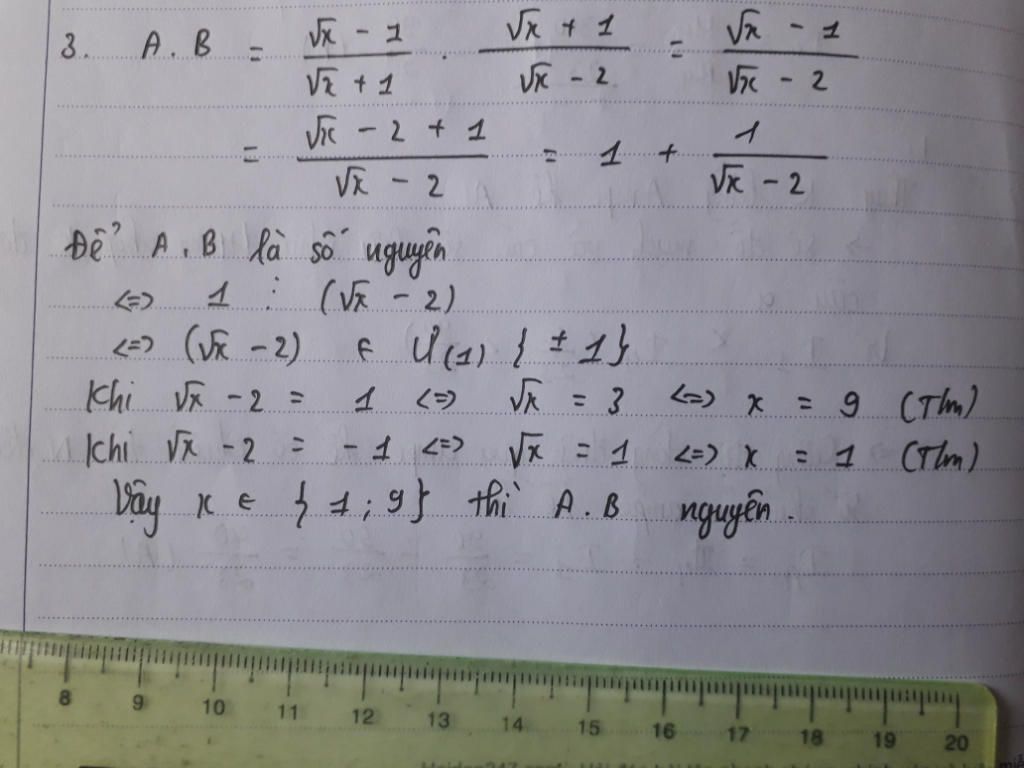 3. A.B = \frac{\sqrt{x} - 1}{\sqrt{x} + 1} . \frac{\sqrt{x} + 1}{\sqrt{x} - 2} = \frac{\sqrt{x} - 1}{\sqrt{x} - 2}
= \frac{\sqrt{x} - 2 + 1}{\sqrt{x} - 2} = 1 + \frac{1}{\sqrt{x} - 2}
Để A.B là số nguyên
<=> 1 ⋮ (√x - 2)
<=> (√x - 2) ∈ Ư(1) { ± 1}
Khi √x - 2 = 1 <=> √x = 3 <=> x = 9 (Tlm)
Khi √x - 2 = - 1 <=> √x = 1 <=> x = 1 (Tlm)
Vậy x ∈ { 1 ; 9} thì A.B nguyên.
8 9 10 11 12 13 14 15 16 17 18 19 20